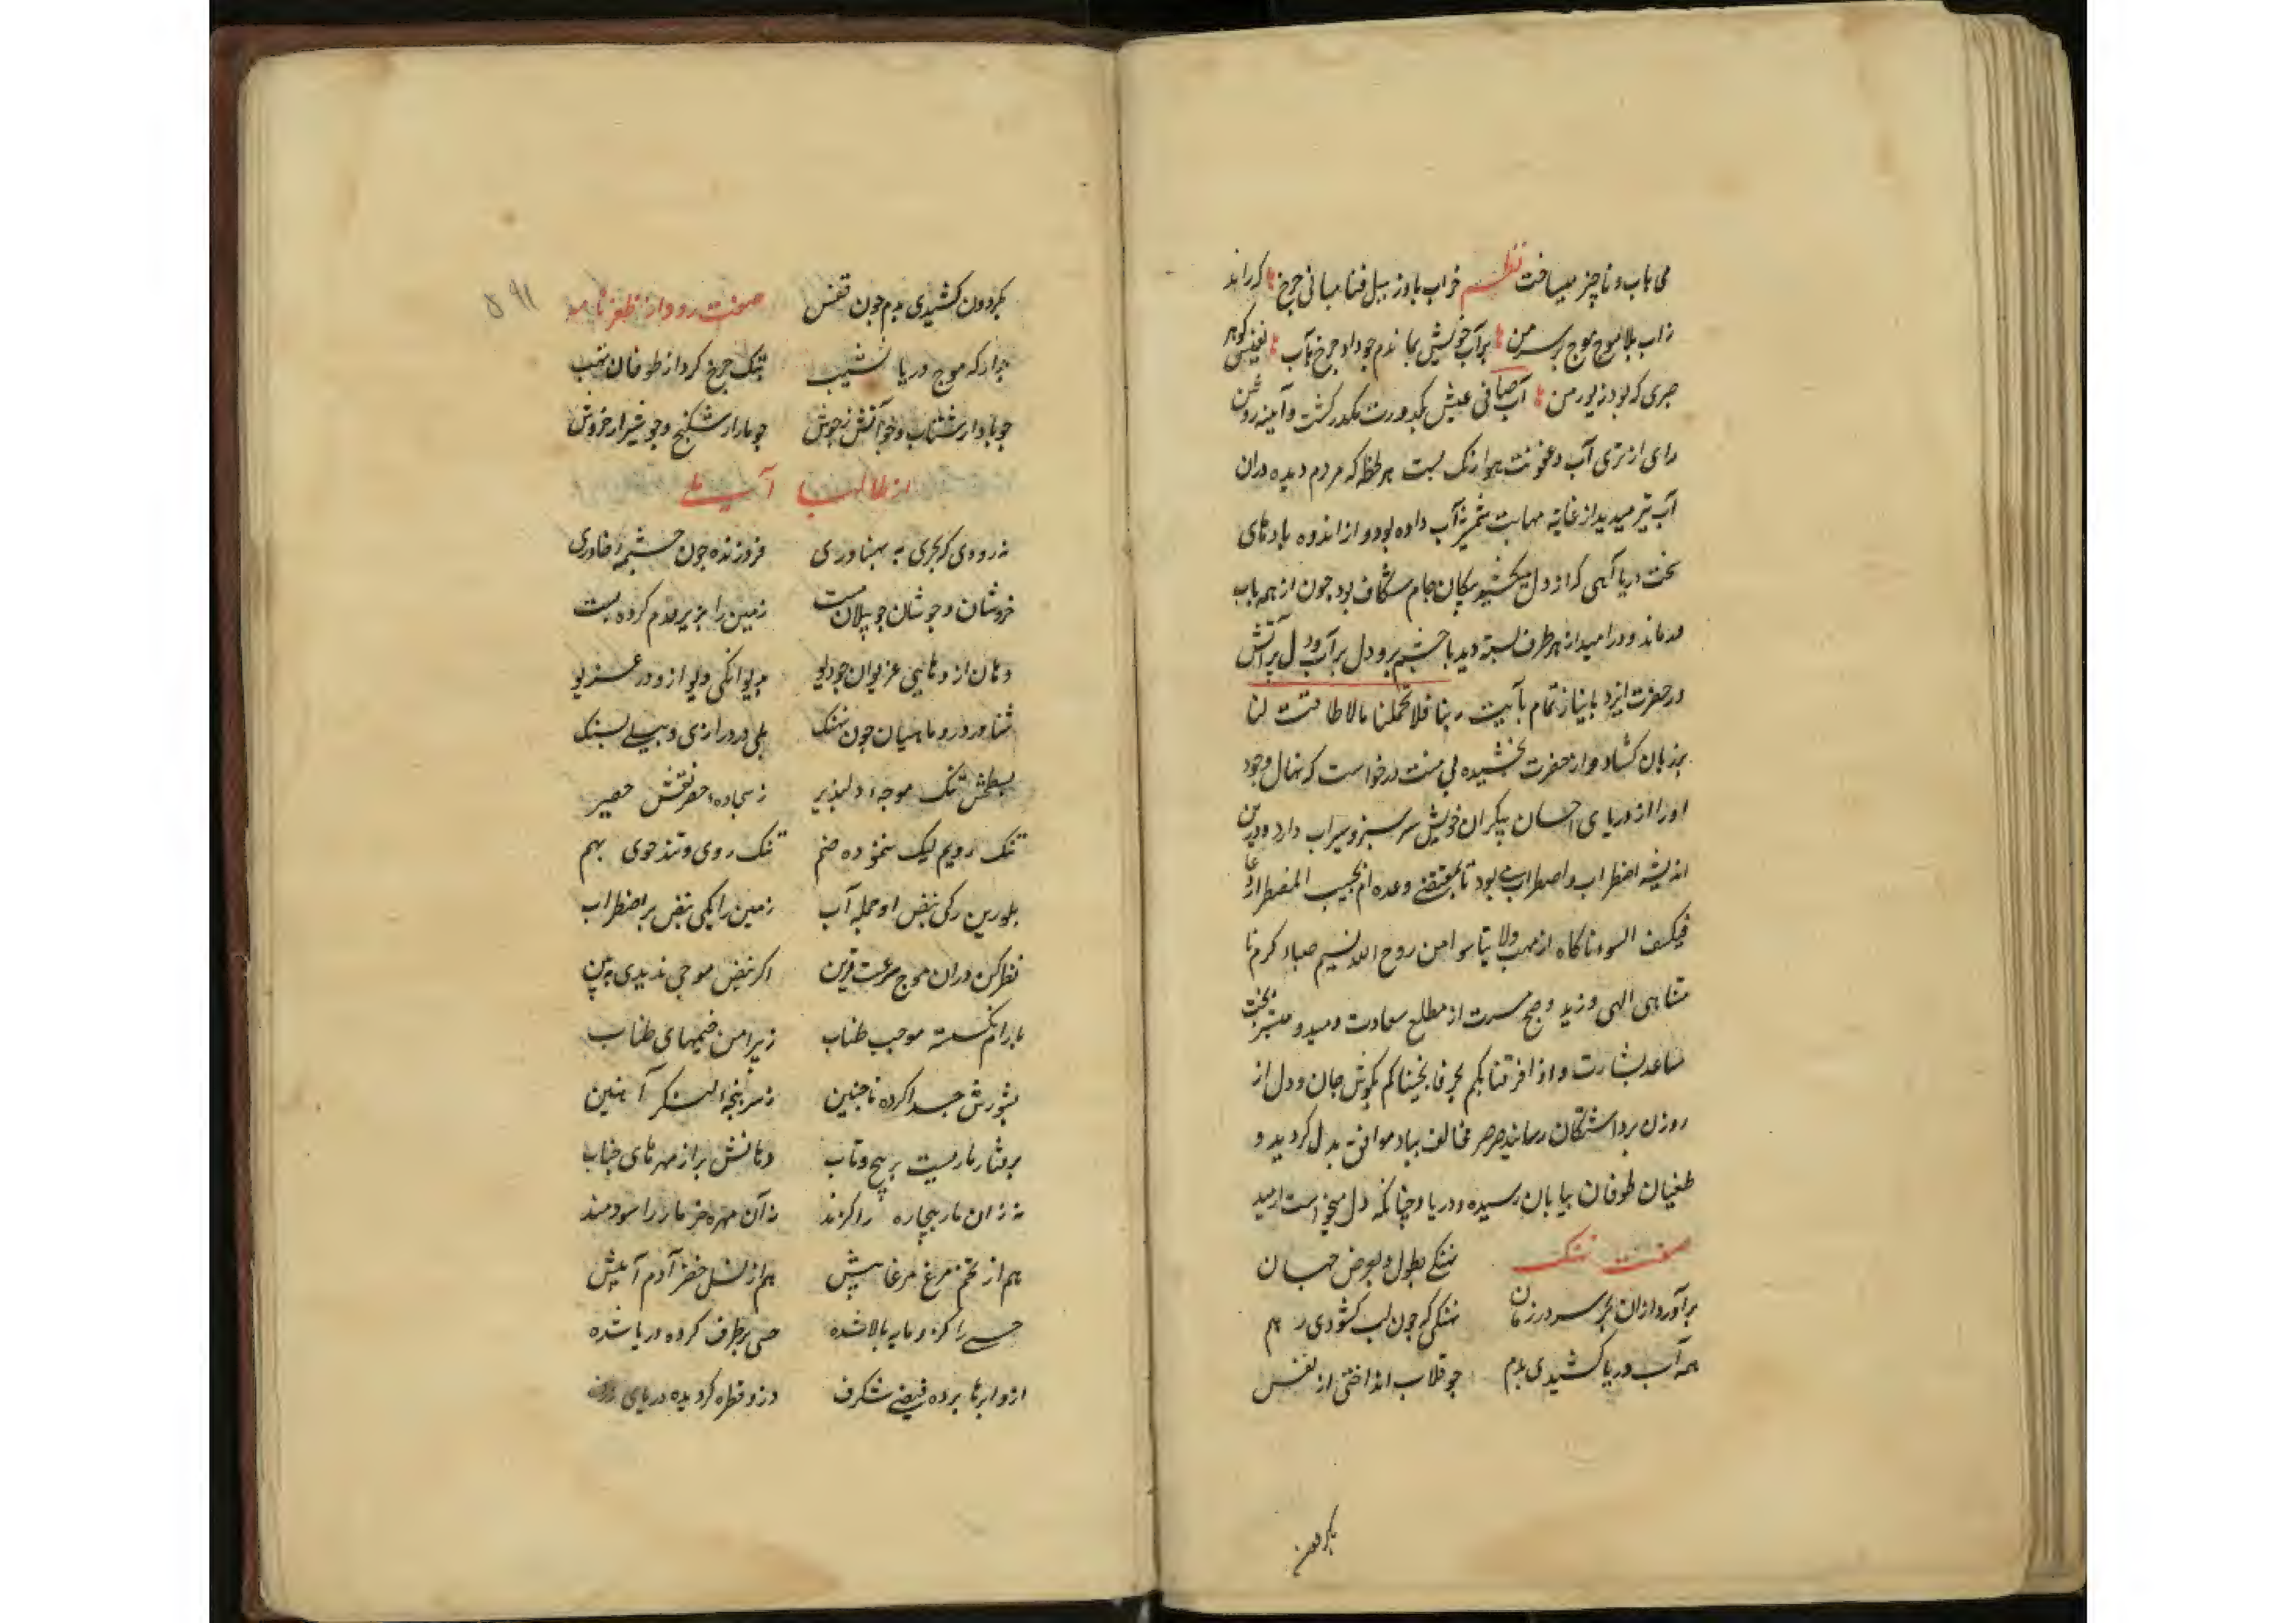 می یاب و ناچیز میسافت نظم خراب باد ز سیل فنا مبانی چرخ که راند
ز آب بلا موج موج بر سر من بر آب خویش بماندم چو داد چرخ بآب نفیس گوهر
صبری که بود زیور من آب صافی عیش بکدورت مکدر کشت و آینه روشن
رای از تری آب و عفونت هوا زنک بست هر لحظه که مردم دیده دران
آب تیز میدید از غایة مهابت بآب داده بود و از اندوه بادهای
سخت دریا آهی که از دل میکشید پیکان جام شکاف بود چون از همه باب
درماند و در امید از هر طرف بسته دید با چشم پر و دل پر آب و دل پر آتش
در حضرت ایزد با نیاز تمام بآیت ربنا فلا تحملنا مالا طاقت لنا
بر زبان کشاد و از حضرت بخشیده بی منت درخواست که نهال وجود
او را از دریای احسان بیکران خویش سرسبز و سیراب دارد و درین
اندیشه اضطراب و اضطراب بود تا بمقتضی وعده ام نجیب المضطر اذا دعا
فیکشف السوء ناکاه از مهب ولا تیاسوا من روح الله نسیم صباء کرم نا
متناهی الهی وزید و صبح مسرت از مطلع سعادت دمید و مبشر بخت
مساعد بشارت و اذ افرقنا بکم بحر فانجیناکم بکوش جان و دل از
روزن برداشتکان رسانید صرصر مخالف بباد موافق بدل کردید و
طغیان طوفان بپایان رسیده و دریا چنانکه دل میخواست ارمید
صفت نهنک نهنکی بطول و بعرض جهان
برآورد ازان بحر سر در زمان نهنکی که چون لب کشودی ز هم
همه آب دریا کشیدی بدم چو قلاب انداختی از نفس
بکردون
بکردون کشیدی بدم چون قفس صفت رود از ظفرنامه
۵۹۱
چرا که موج دریا نشیب بتک چرخ کرد از طوفان نهیب
چو باد از شتاب و چو آتش ز جوش چو مار از شکنج و چو شیر از خروش
از طالبا آملی
نه رودی که بحری به پهناوری فروزنده چون چشمه خاوری
خروشان و جوشان چو پیلان مست زمین را بزیر قدم کرده پست
دهان از دهانی غریوان چو دیو بدیوانکی دیو ازو در غریو
شناور درو ماهیان چون نهنک پلی در درازی و پیلی بسنک
بسطحش تنک موجه دلپذیر ز سجاده خضر نقش حصیر
تنک رویم لیک ننموده ضم تنک روی و تندخوی بهم
بلورین رکی نبض او جمله آب زمین را یکی نبض پر اضطراب
نظر کن دران موج سرعت قرین اکر نبض موجی ندیدی ببین
بشورش جدا کرده ناجنین ز سرپنجه لنکر آهنین
برفتار ماریست پر پیچ و تاب دهانش پر از مهرهای حباب
نه زان مار بیچاره را کزند نه آن مهره جز مار را سودمند
هم از تخم مرغ مرغابیش هم از نسل خضر آدم آبیش
خسی را کزو مایه بالا شده خسی برطرف کرده دریا شده
ازو ابرها برده فیضی شکرف وزو قطره کردیده دریای ژرف